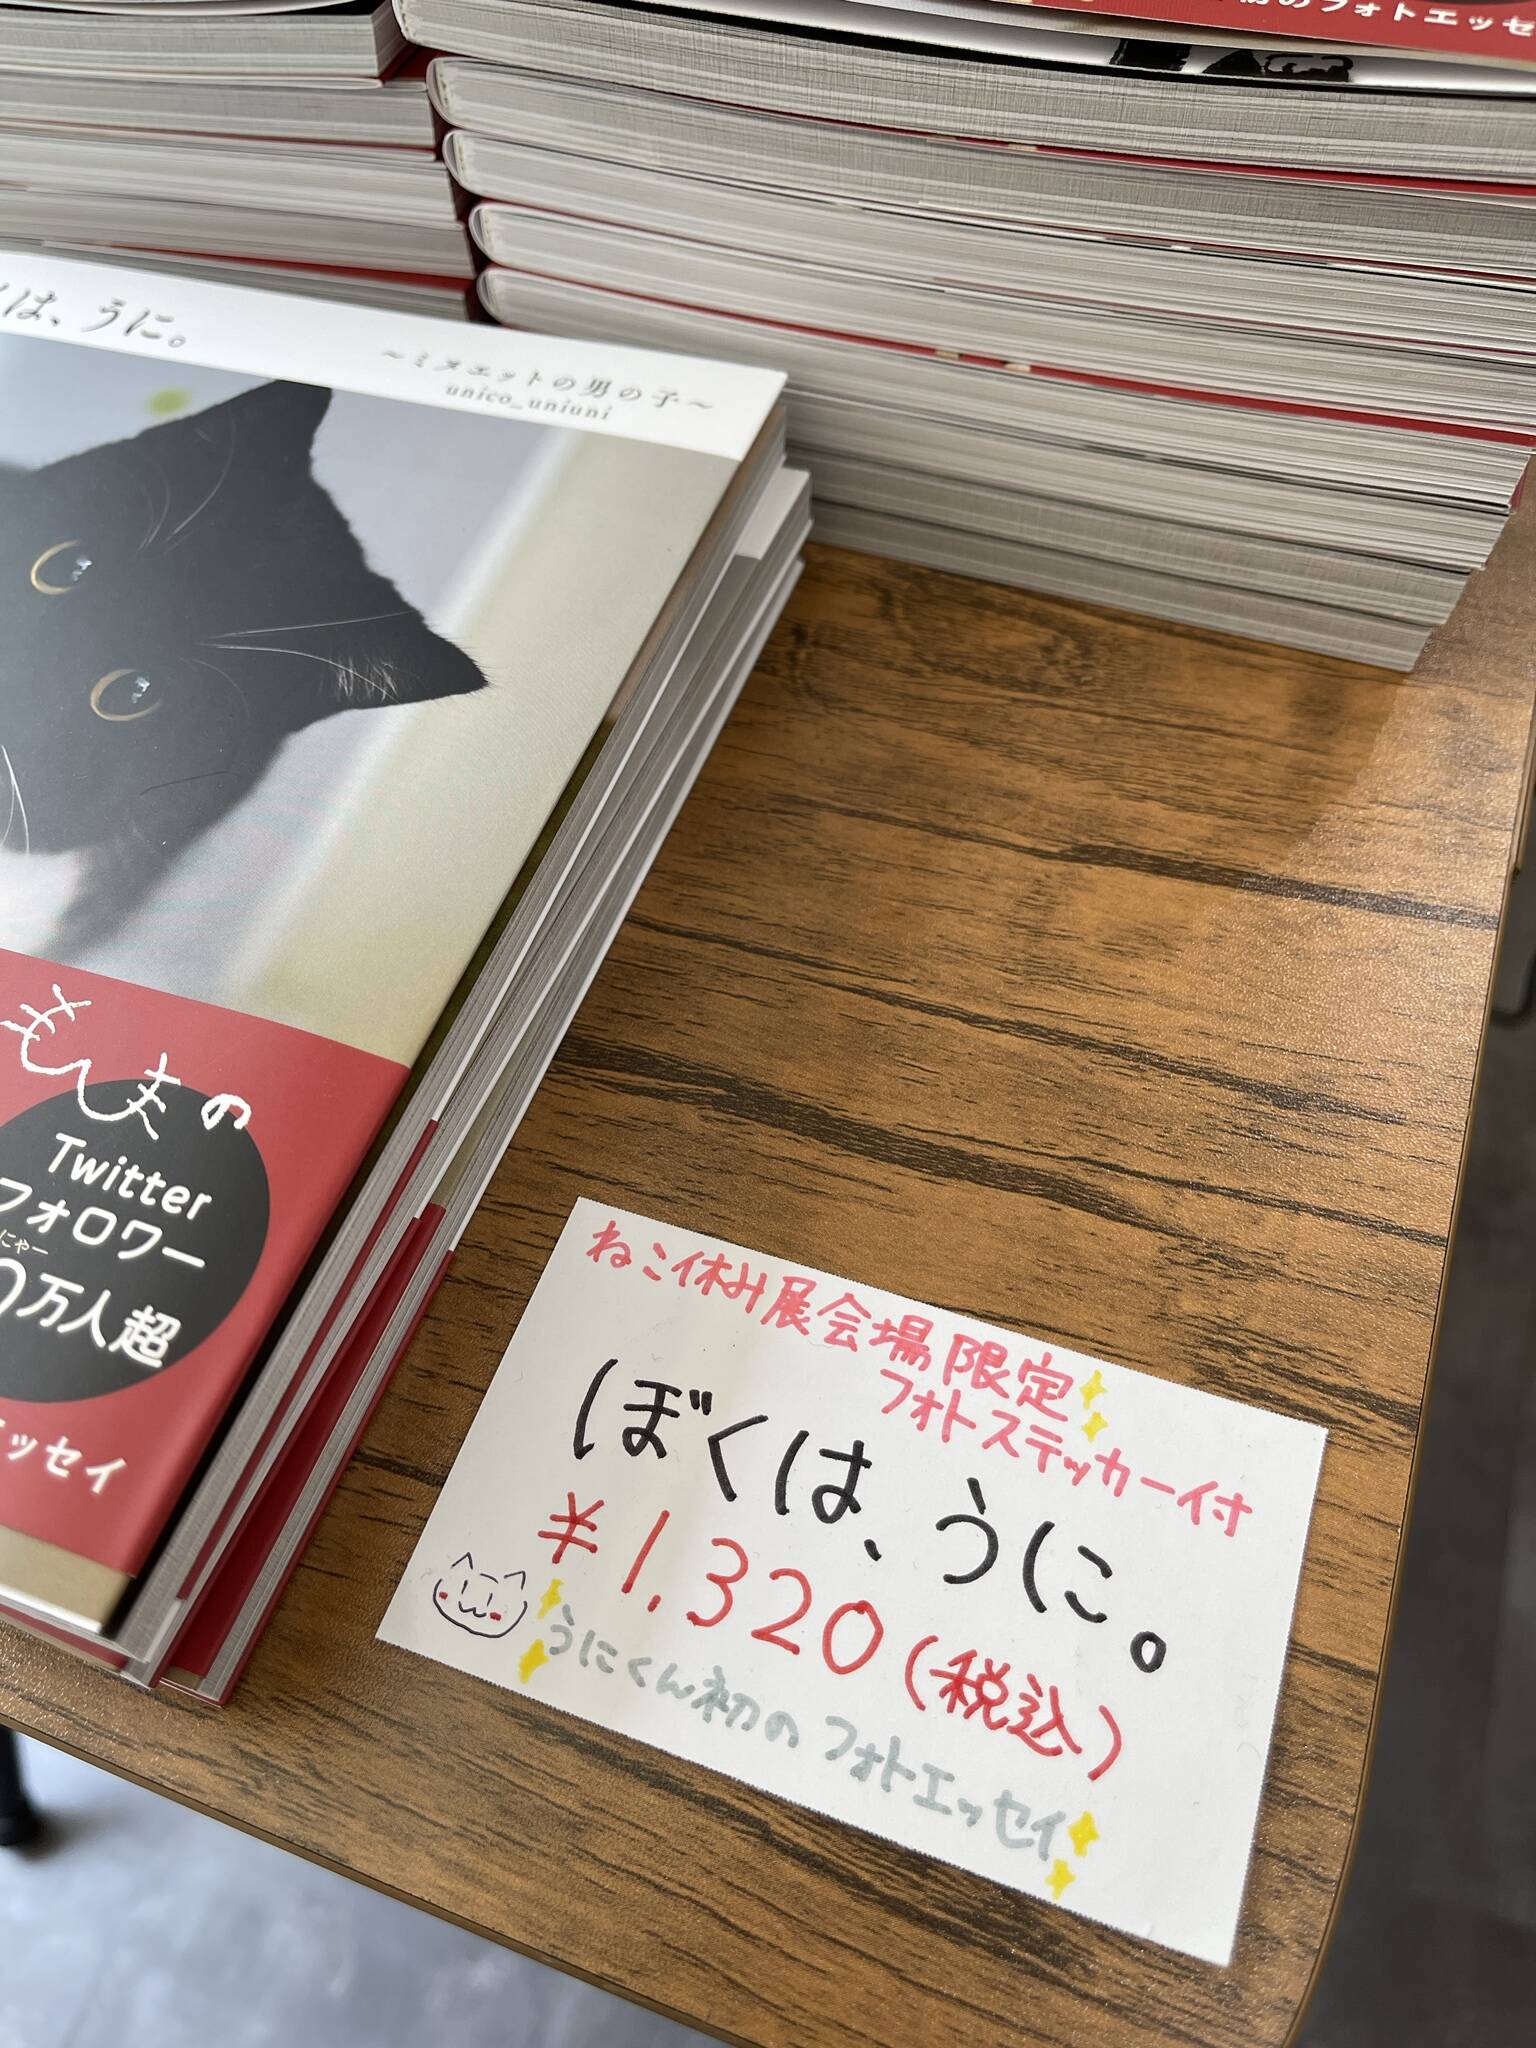 のフォトエッセ
くは、うに。
～ミヌエットの男の子～
unico_uniuni
夫の
Twitter
フォロワー
にゃー
万人超
エッセイ
ねこ休み展会場限定
フォトステッカー付
ぼくは、うに。
¥1,320(税込)
うにくん初のフォトエッセイ